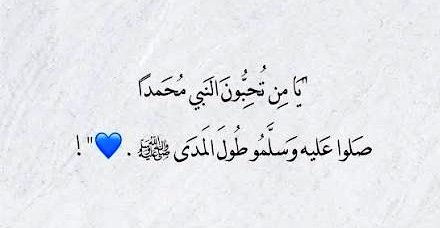 "يَا مِن تُحِبُّونَ النَبي مُحَمداً
صَلوا عَليه وَسلَّمُو طُولَ المَدَى ﷺ . 💙" !